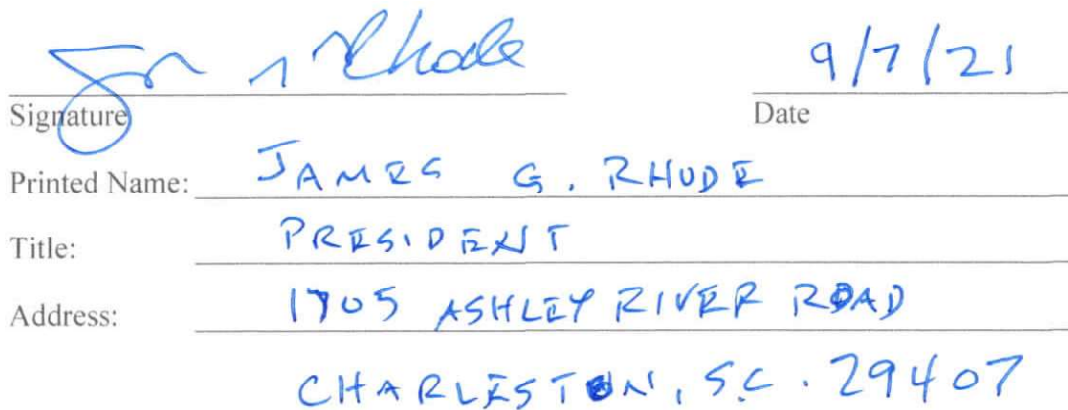 Rhode 9/7/21
Signature Date
Printed Name: JAMES G. RHODE
Title: PRESIDENT
Address: 1705 ASHLEY RIVER ROAD
CHARLESTON, S.C. 29407